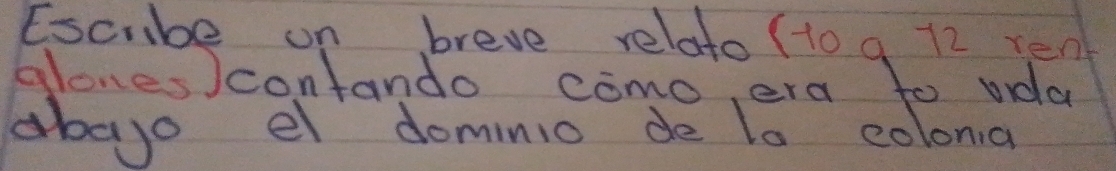 Escribe un breve relato (10 a 12 ren-
glones) contando cómo era to vida
abajo el dominio de la colonia